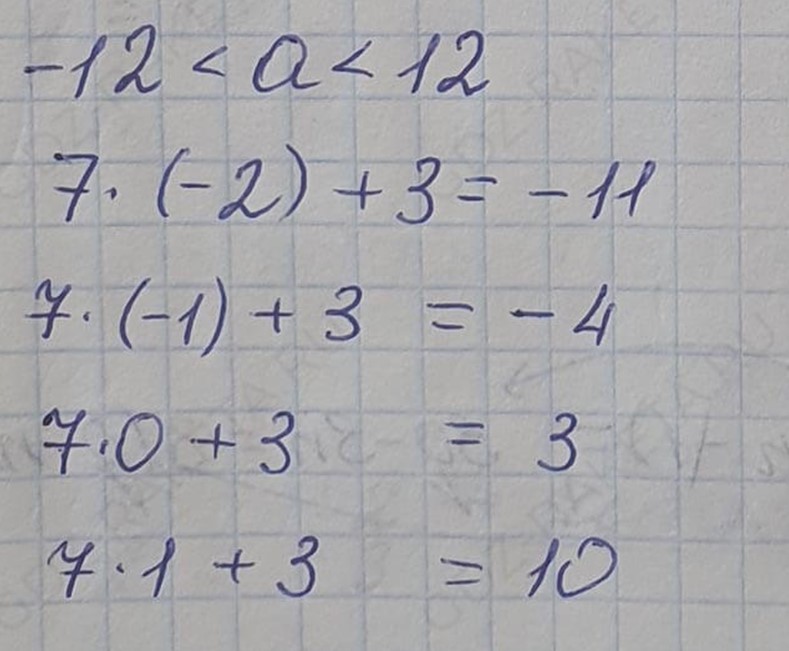 -12 < a < 12
7· (-2) + 3 = -11
7· (-1) + 3 = -4
7·0 + 3 = 3
7·1 + 3 = 10